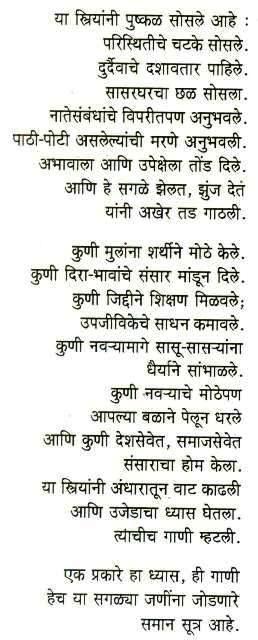 या स्त्रियांनी पुष्कळ सोसले आहे :
परिस्थितीचे चटके सोसले.
दुर्दैवाचे दशावतार पाहिले.
सासरघरचा छळ सोसला.
नातेसंबंधांचे विपरीतपण अनुभवले.
पाठी-पोटी असलेल्यांची मरणे अनुभवली.
अभावाला आणि उपेक्षेला तोंड दिले.
आणि हे सगळे झेलत, झुंज देतं
यांनी अखेर तड गाठली.
कुणी मुलांना शर्थीने मोठे केले.
कुणी दिरा-भावांचे संसार मांडून दिले.
कुणी जिद्दीने शिक्षण मिळवले;
उपजीविकेचे साधन कमावले.
कुणी नवऱ्यामागे सासू-सासऱ्यांना
धैर्याने सांभाळले.
कुणी नवऱ्याचे मोठेपण
आपल्या बळाने पेलून धरले
आणि कुणी देशसेवेत, समाजसेवेत
संसाराचा होम केला.
या स्त्रियांनी अंधारातून वाट काढली
आणि उजेडाचा ध्यास घेतला.
त्याचीच गाणी म्हटली.
एक प्रकारे हा ध्यास, ही गाणी
हेच या सगळ्या जणींना जोडणारे
समान सूत्र आहे.